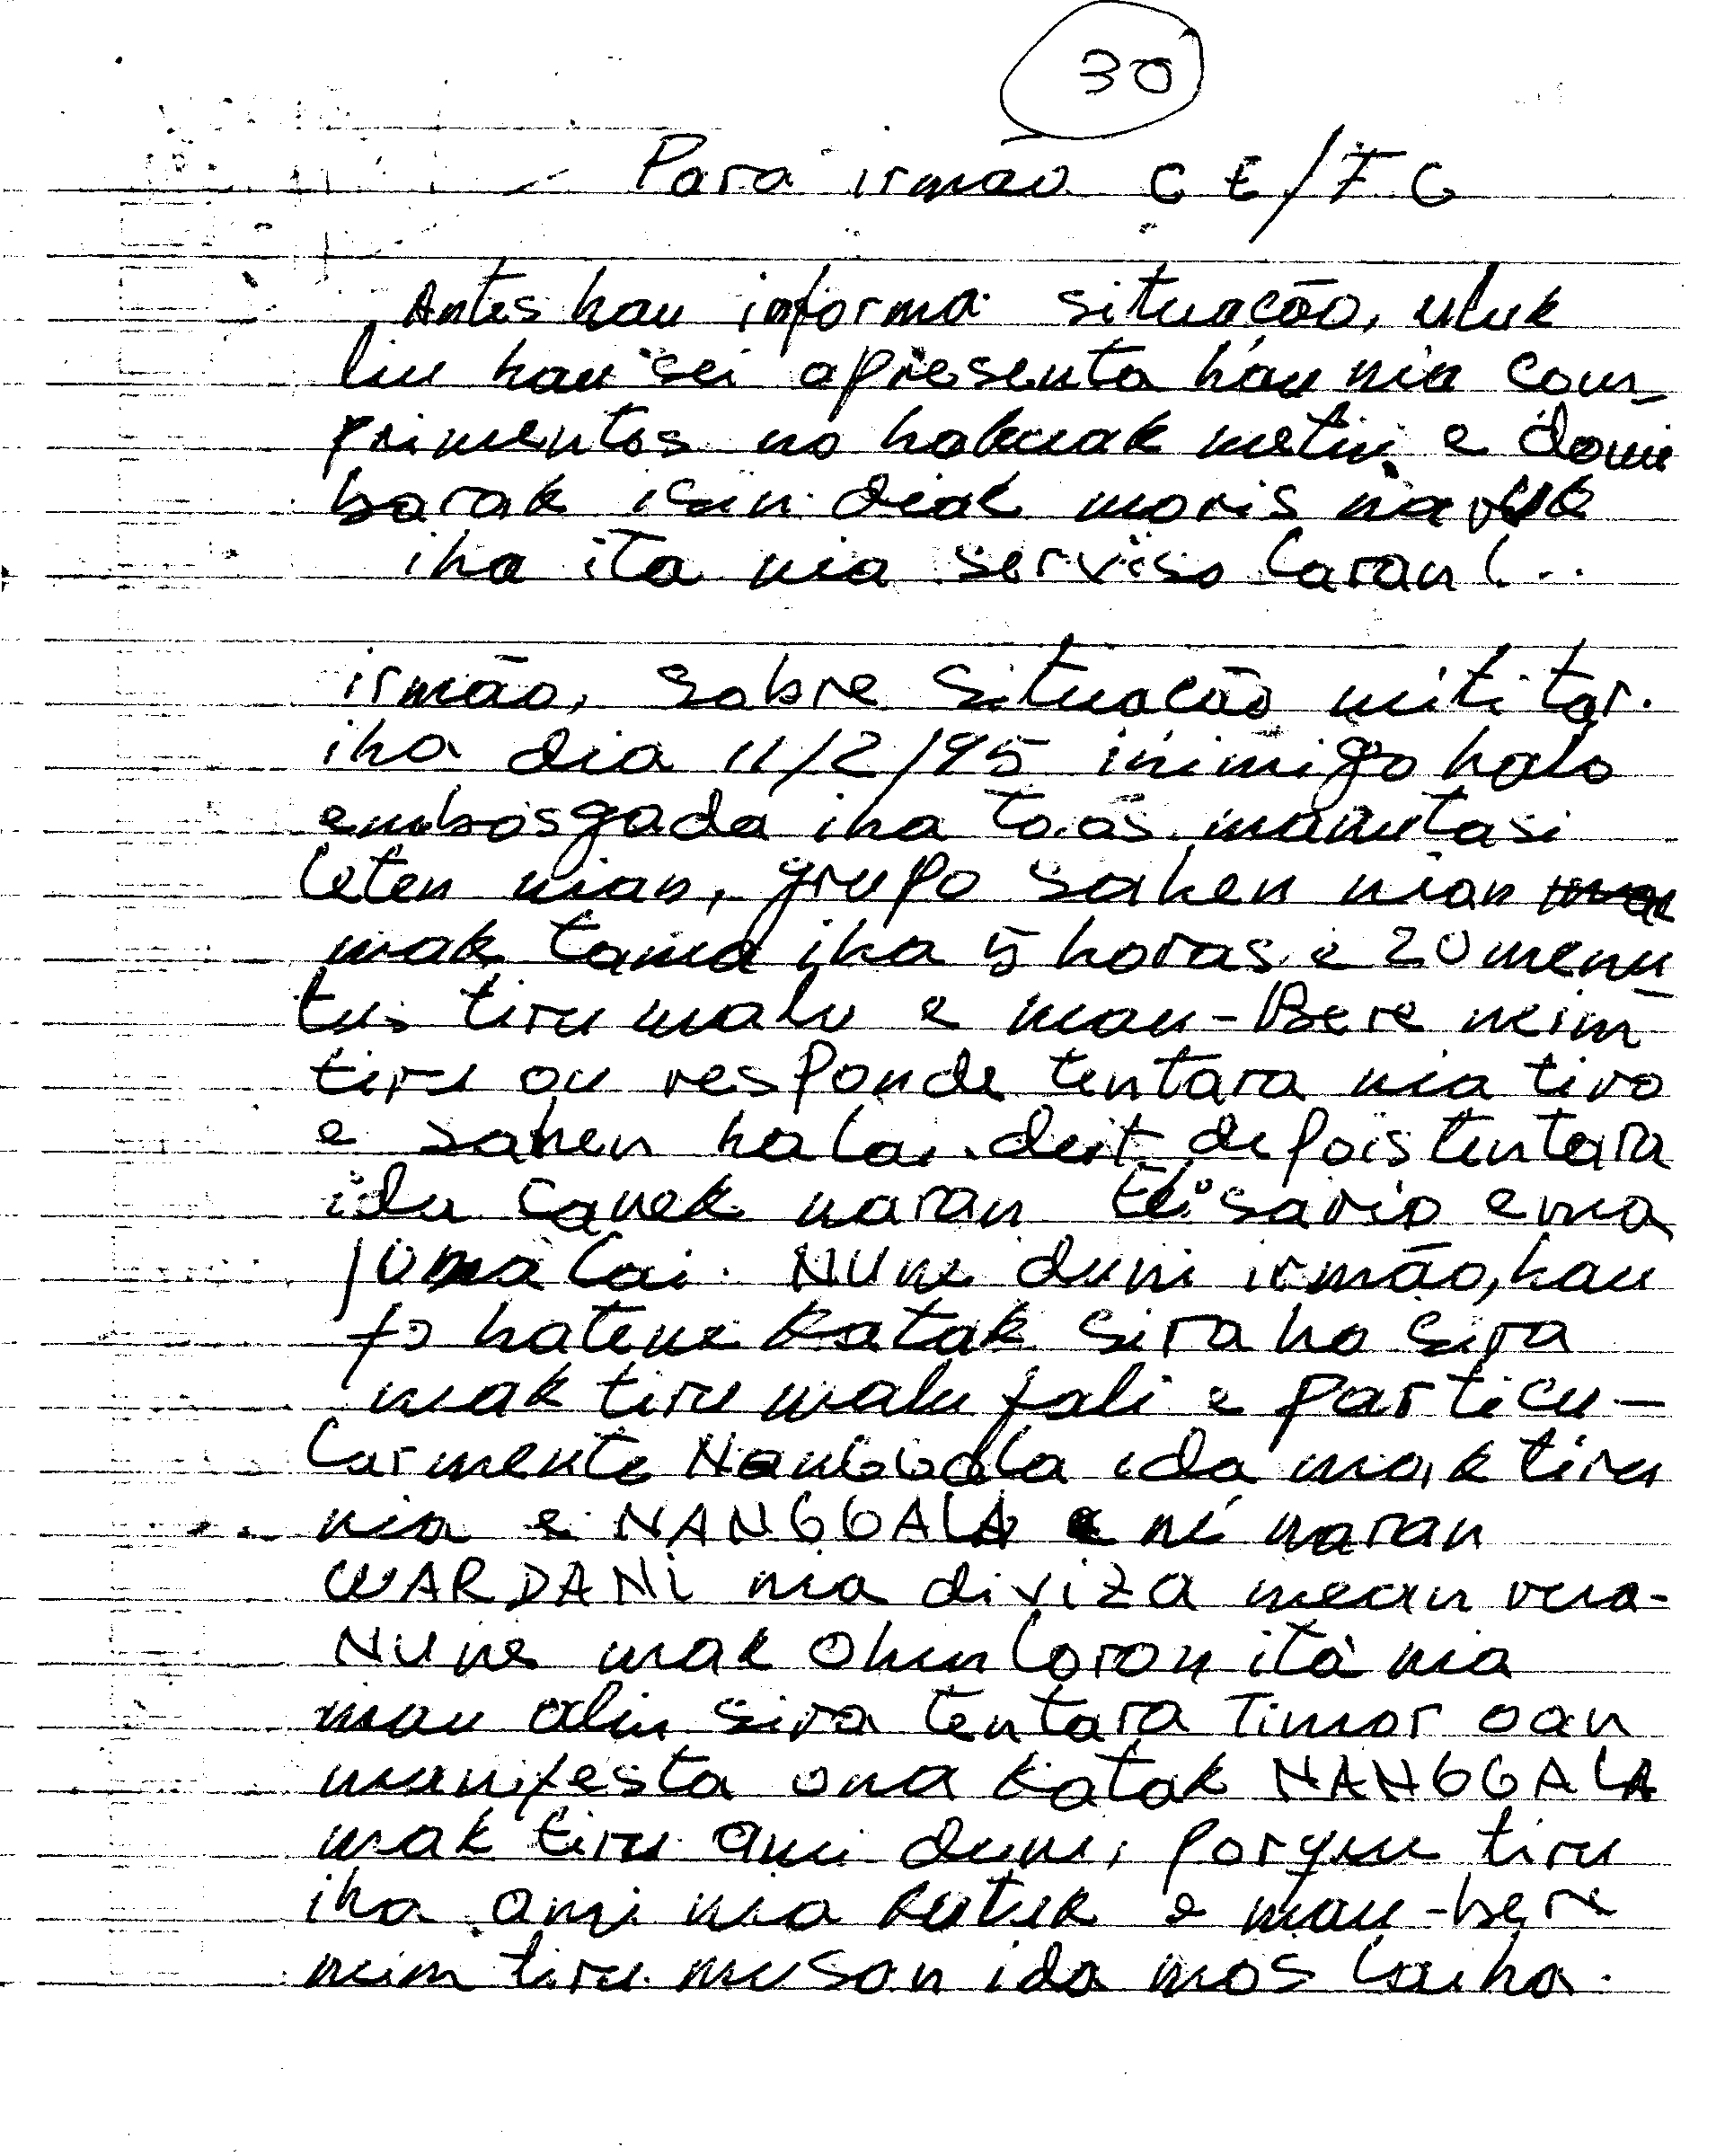 30
Para irmão C E/F G
Antes hau informa situação, uluk
liu hau sei apresenta hau nia com-
primentos no hakuak metin e domi
barak isin diak moris naruk
iha ita nia serviso laran!..
irmão, sobre situação militar.
iha dia 11/2/95 inimigo halo
embosgada iha to.os manutasi
leten nian, grupo sahen nian
mak tama iha 5 horas e 20 menu
tus tiru malu e mau-Bere neim
tiru ou responde tentara nia tiro
e sahen halai deit depois tentara
ida canek naran Elisario ema
jumalai. NUNE duni irmão, hau
fo hatene katak sira ho sira
mak tiru malu fali e particu-
larmente NanGGala ida mak tiru
nia e NANGGALA e né naran
WARDANI nia diviza mean rua-
NUNE mak Ohin loron ita nia
mau alin sira tentara Timor oan
manifesta ona katak NANGGALA
mak tiru ami duni, porque tiru
iha ami nia kotuk e mau-bere
neim tiru musan ida mos laiha.